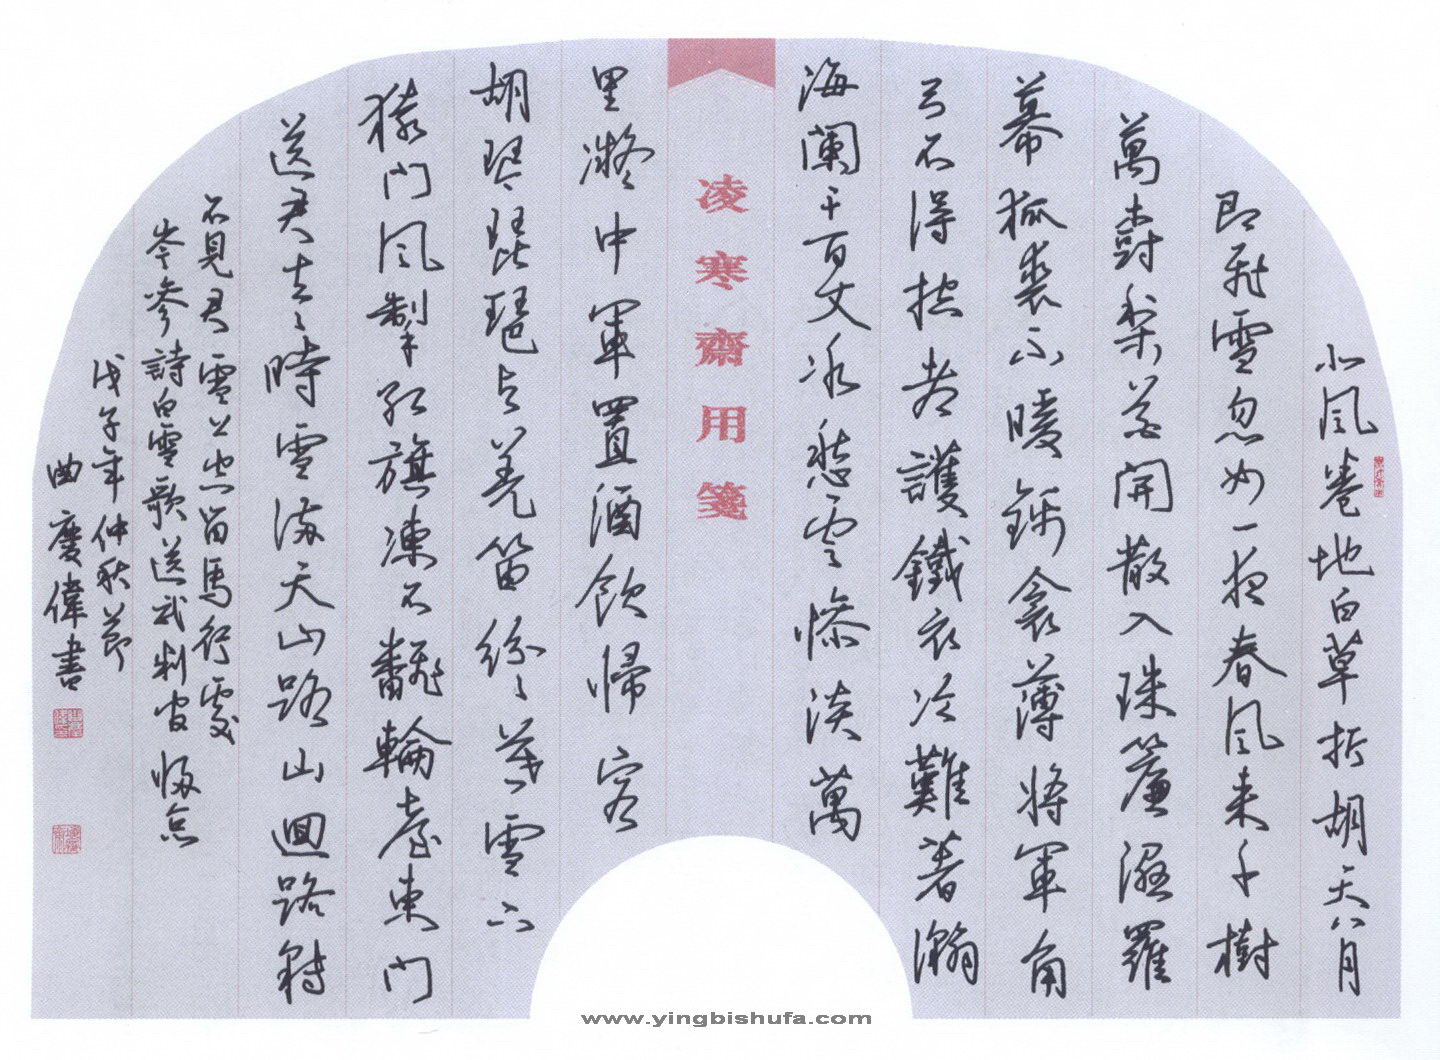 北風卷地白草折胡天八月
即飛雪忽如一夜春風來千樹
萬樹梨花開散入珠簾濕羅
幕狐裘不暖錦衾薄將軍角
弓不得控都護鐵衣冷難著瀚
海闌干百丈冰愁雲慘淡萬
凌寒齋用箋
里凝中軍置酒飲歸客
胡琴琵琶与羌笛紛〻暮雪下
猿門風掣紅旗凍不飜輪臺東門
送君去〻時雪滿天山路山迴路轉
不見君雪上空留馬行處
岑參詩白雪歌送武判官歸京
戊子年仲秋節
曲慶偉書
www.yingbishufa.com